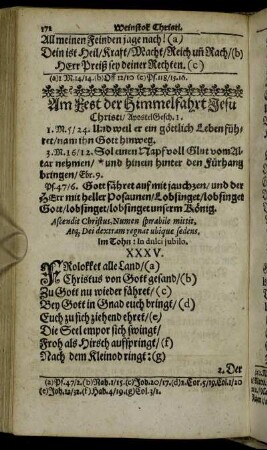 172 Weinstok Christi.
All meinen Feinden jage nach! (a)
Dein ist Heil/Kraft/Macht/Reich uñ Rach/(b)
HErr Preiß sey deiner Rechten. (c)
(a) 1. M. 14/14. (b) Off 12/10 (c) Pf. 118/15. 16.
Am Fest der Himmelfahrt Jesu
Christi/ ApostelGesch. 1.
1. M. 5/24. Und weil er ein göttlich Leben füh-
ret/nam ihn Gott hinweg.
3. M. 16/12. Sol einen Napf voll Glut vom Al-
tar nehmen/ * und hinein hinter den Fürhang
bringen/ Ebr. 9.
Ps. 47/6. Gott fähret auf mit jauchzen/ und der
HErr mit heller Posaunen/Lobsinget/lobsinget
Gott/lobsinget/lobsinget unserm König.
Ascendit Christus. Numen spirabile mittit,
Atq; Dei dextram regnat ubique sedens,
Im Tohn: In dulci jubilo.
XXXV.
FRolokket alle Land/(a)
Christus von Gott gesand/(b)
Zu Gott nu wieder fähret/(c)
Bey Gott in Gnad euch bringt/(d)
Euch zu sich ziehend ehret/(e)
Die Seel empor sich swingt/
Froh als Hirsch aufspringt/(f)
Nach dem Kleinod ringt: (g)
2. Der
(a) Ps. 47/2. (b) Nah. 1/15. (c) Joh. 20/17. (d) 2. Cor. 5/19. Col. 1/20
(e) Joh. 12/32. (f) Hab. 4/19. (g) Col. 3/1.